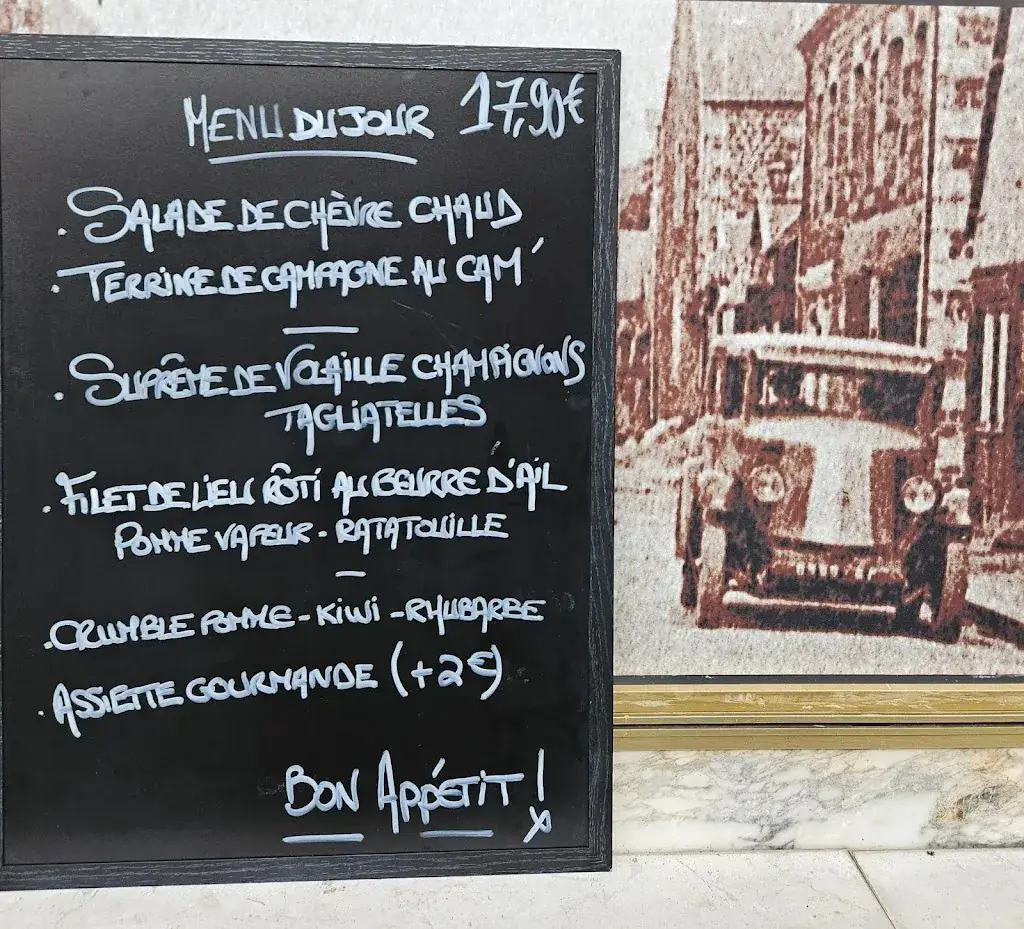 MENU DU JOUR 17,90€
. SALADE DE CHÈVRE CHAUD
. TERRINE DE CAMPAGNE AU CAM'
. SUPRÊME DE VOLAILLE CHAMPIGNONS
TAGLIATELLES
. FILET DE LIEU RÔTI AU BEURRE D'AIL
POMME VAPEUR - RATATOUILLE
. CRUMBLE POMME - KIWI - RHUBARBE
. ASSIETTE GOURMANDE (+2€)
BON APPÉTIT !